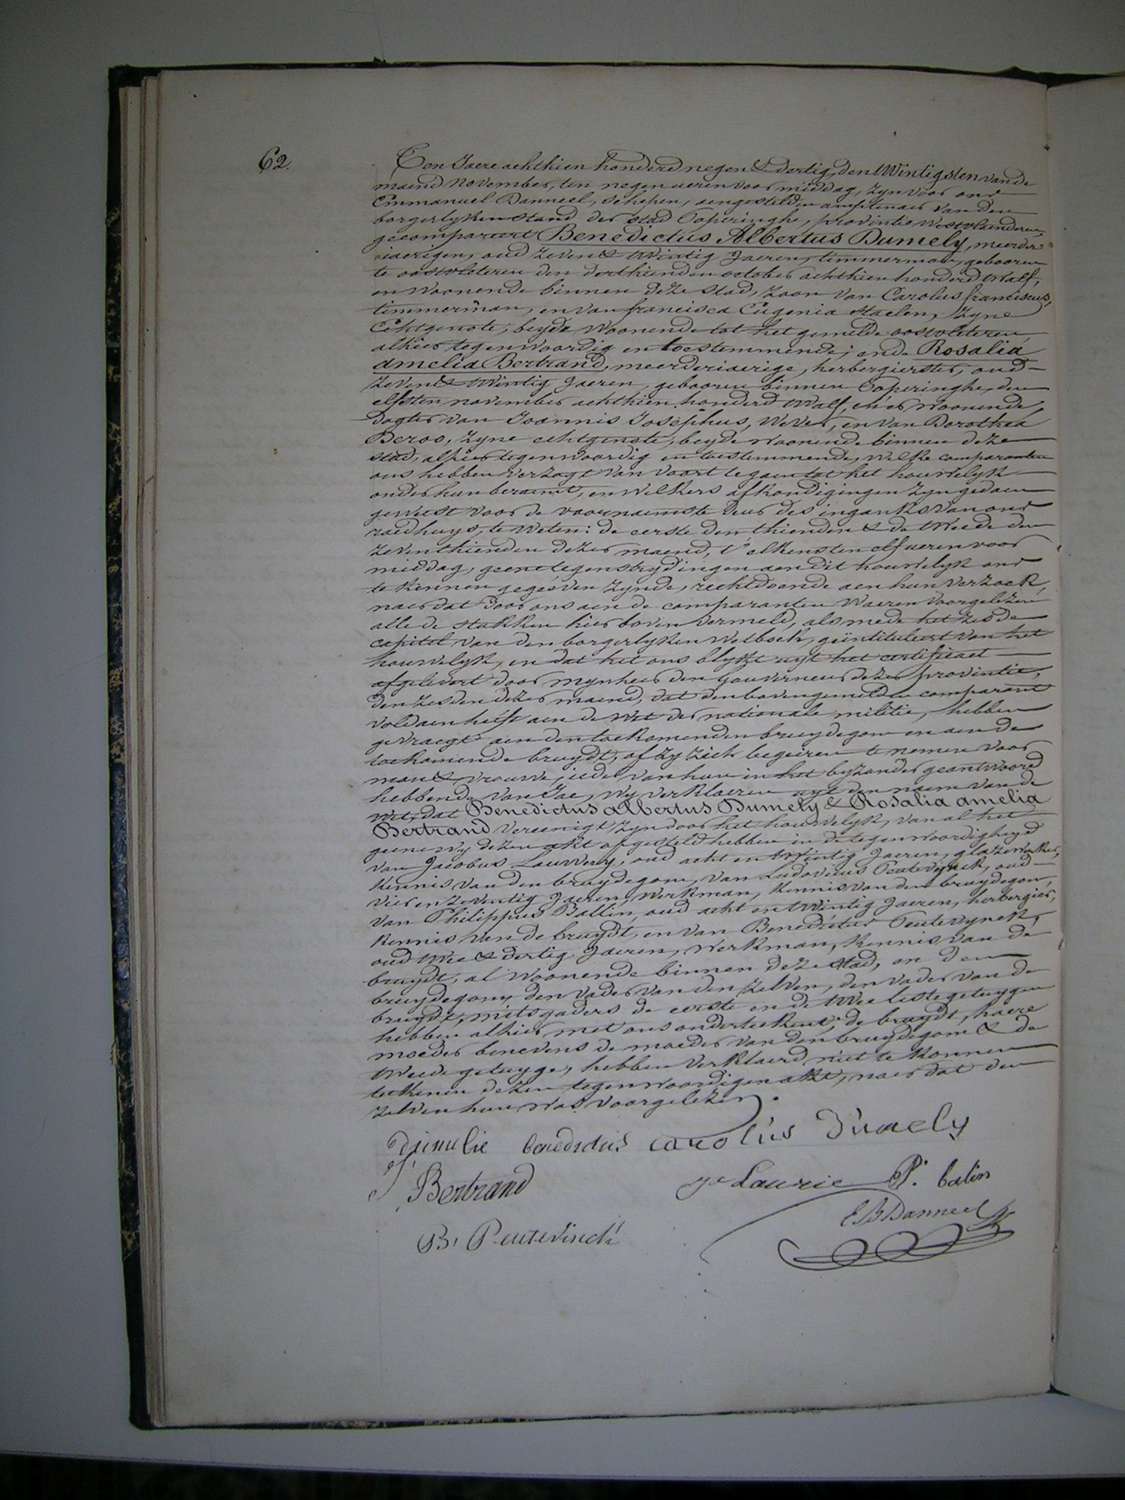 62.
Ten Jaere achthien honderd negen & dertig, den twintigsten van de
maend November, ten negen ueren voor middag, zyn voor ons
Emmanuel Danneel, schepen, aengestelden amptenaer van den
borgerlyken stand der stad Poperinghe, provintie Westvlaenderen,
gecompareert Benedictus Albertus Dumely, meerder
iaerigen, oud zeven & twintig Jaeren, timmerman, gebooren
te oostvleteren den derthienden october achthien honderd twalf,
en woonende binnen deze stad, zoon van Carolus franciscus,
timmerman, en van francisca Eugenia Staelen, zyne
Echtgenote, beyde woonende tot het gemelde oostvleteren
alhier tegenwoordig en toestemmende; ende Rosalia
amelia Bertrand, meerderiaerige, herbergierster, oud
zeven & twintig Jaeren, gebooren binnen Poperinghe, den
elfsten november achthien honderd twalf, en er woonende
Dogter van Joannis Josephus, wever, en van Dorothea
Beros, zyne echtgenote, beyde woonende binnen deze
stad, alhier tegenwoordig en toestemmende, welke comparanten
ons hebben verzogt van voort te gaen tot het houwelyk
onder hun beraemt, en welkers afkondigingen zyn gedaen
geweest voor de voornaemste deur des ingangs van ons
raedhuys, te weten: de eerste den thienden & de tweede den
zeventhienden dezer maend, t'elkens ten elf ueren voor
middag, geene tegenstrydingen aen dit houwelyk ons
te kennen gegeven zynde, rechtdoende aen hun verzoek,
naer dat door ons aen de comparanten waeren voorgelezen
alle de stukken hier boven vermeld, als mede het zesde
capittel van den borgerlyken wetboek, geintituleert van het
houwelyk, en dat het ons blykt uyt het certificaet
afgelevert door mynheer den Gouverneur dezer provintie,
den zesden dezer maend, dat den bovengemelden comparant
voldaen heeft aen de wet der nationale militie, hebben
gevraegt aen den toekomenden bruydegom en aen de
toekomende bruydt, of zy zich begeiren te nemen voor
man & vrouwe, ieder van hun in het byzonder geantwoord
hebbende van Jae, wy verklaeren uyt den naem van de
wet, dat Benedictus albertus Dumely & Rosalia amelia
Bertrand vereenigt zyn door het houwelyk, van al het
gene wy dezen akt opgesteld hebben in de tegenwoordigheyd
van Jacobus Lauwerie, oud acht en twintig Jaeren, glazemaker,
kennis van den bruydegom, van Ludovicus Peutevynck, oud
vier en zeventig Jaeren, werkman, kennis van den bruydegom,
van Philippus Ballin, oud acht en twintig Jaeren, herbergier,
kennis van de bruydt, en van Benedictus Peutevynck,
oud twee & dertig Jaeren, werkman, kennis van de
bruydt, al woonende binnen deze stad, en den
bruydegom, den vader van den zelven, den vader van de
bruydt, mitsgaders de eerste en de twee leste getuygen
hebben alhier met ons onderteekent, de bruydt, haere
moeder benevens de moeder van den bruydegom & de
tweede getuyge, hebben verklaerd niet te konnen
teekenen dezen tegenwoordigen akt, naer dat den
zelven hun was voorgelezen.
Dumelie benedictus carolus Dumely
Bertrand
Laurie P. balin
B. Peutevinck
E. B. Danneel